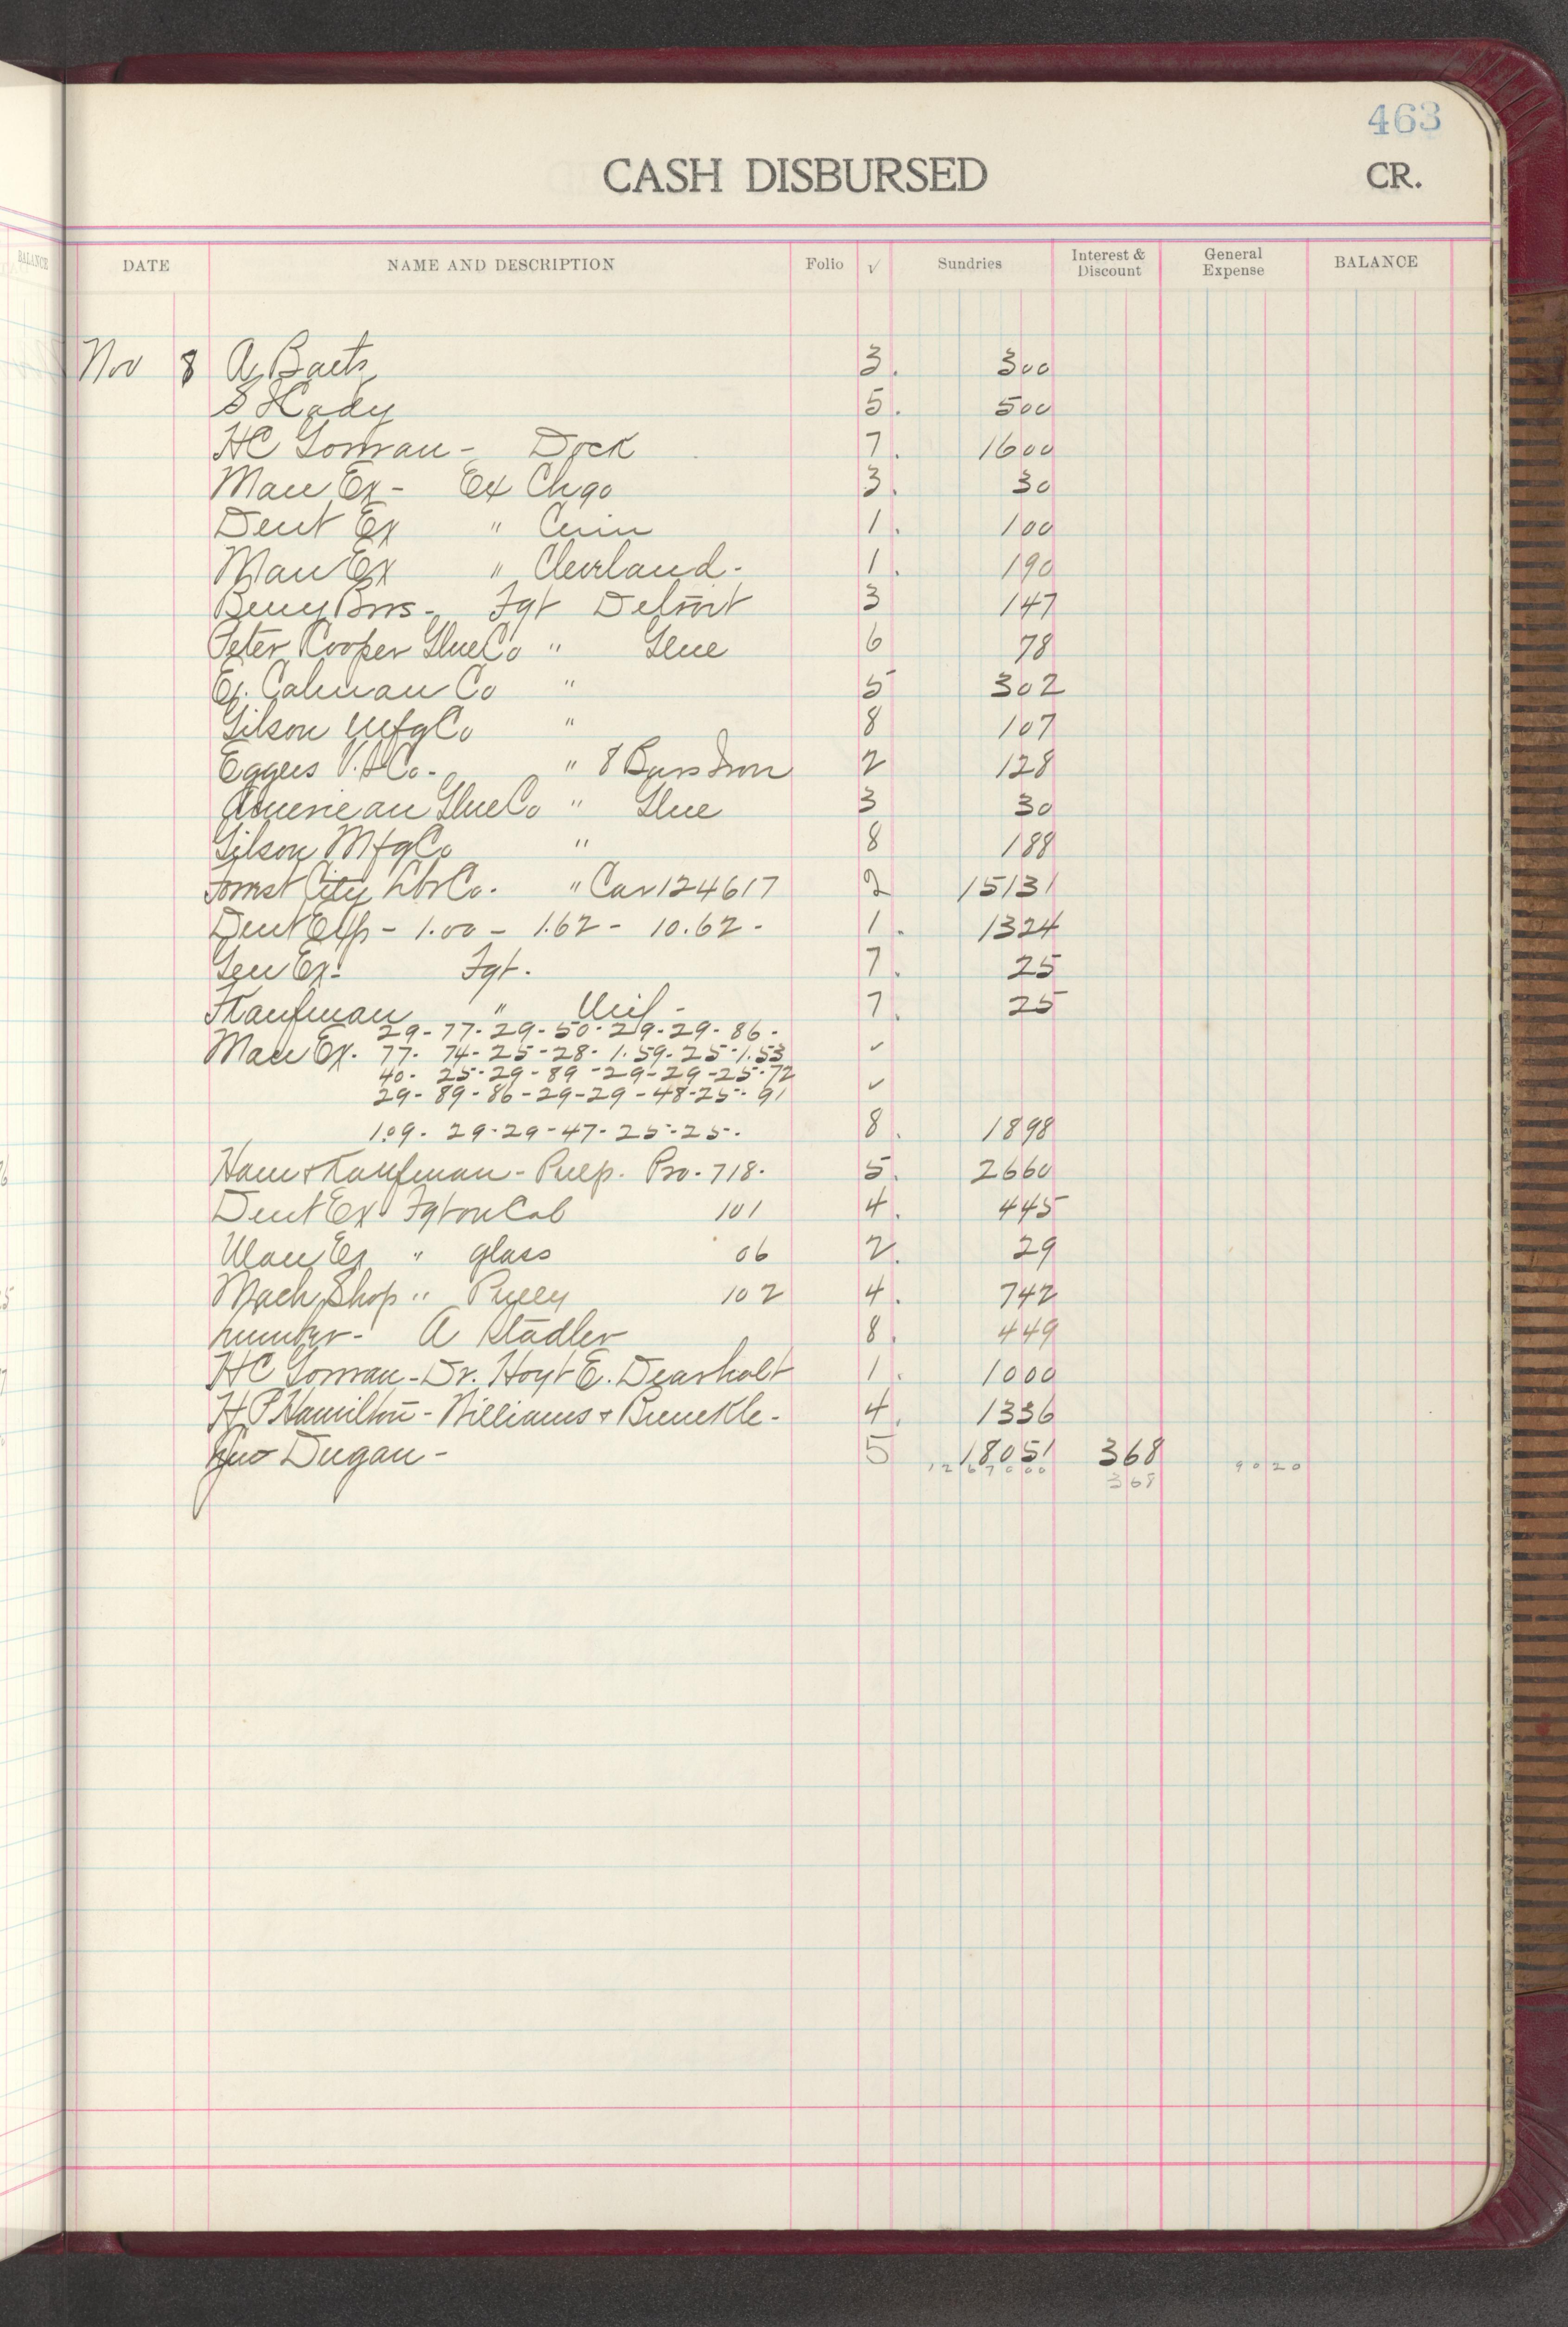 463
CASH DISBURSED CR.
BALANCE
DATE NAME AND DESCRIPTION Folio √ Sundries Interest & Discount General Expense BALANCE
Nov 8 A Baets 3. 300
S H Cady 5. 500
HC Gorman - Dock 7. 1600
Man Ex - Ex Chgo 3. 30
Dent Ex " Cinn 1. 100
Man Ex " Cleveland - 1. 190
Berry Bros - Fgt Detroit 3 147
Peter Cooper Glue Co " Glue 6 78
Calman Co " 5 302
Gilson Mfg Co " 8 107
Eggers V. & Co - " 8 Bars Iron 2 128
American Glue Co " Glue 3 30
Gilson Mfg Co " 8 188
Forest City Lbr Co. " Car 124617 2 15131
Dent Exp - 1.00 - 1.62 - 10.62 - 1. 1324
Gen Ex - Fgt. 7. 25
Kaufman " 7. 25
29 - 77 - 29 - 50 - 29 - 29 - 86 -
Man Ex. 77. 74 - 25 - 28 - 1.59 - 25 - 1.53 ✓
40 - 25 - 29 - 89 - 29 - 29 - 25 - 72
29 - 89 - 86 - 29 - 29 - 48 - 25 - 91 ✓
1.09 - 29 - 29 - 47 - 25 - 25 - 8. 1898
Ham & Kaufman - Pulp. Pro. 718. 5. 2660
Dent Ex Fgt on Cab 101 4. 445
Man Ex " glass 06 2. 29
Mach Shop " Pulley 102 4. 742
Lumber - A Stadler 8. 449
HC Gorman - Dr. Hoyt E. Dearholt 1. 1000
H P Hamilton - Williams & Brunckle - 4. 1336
Dugan - 5 18051 368
1267000 368 9020